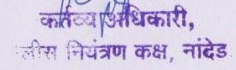 कर्तव्य अधिकारी,
लीस नियंत्रण कक्ष, नांदेड